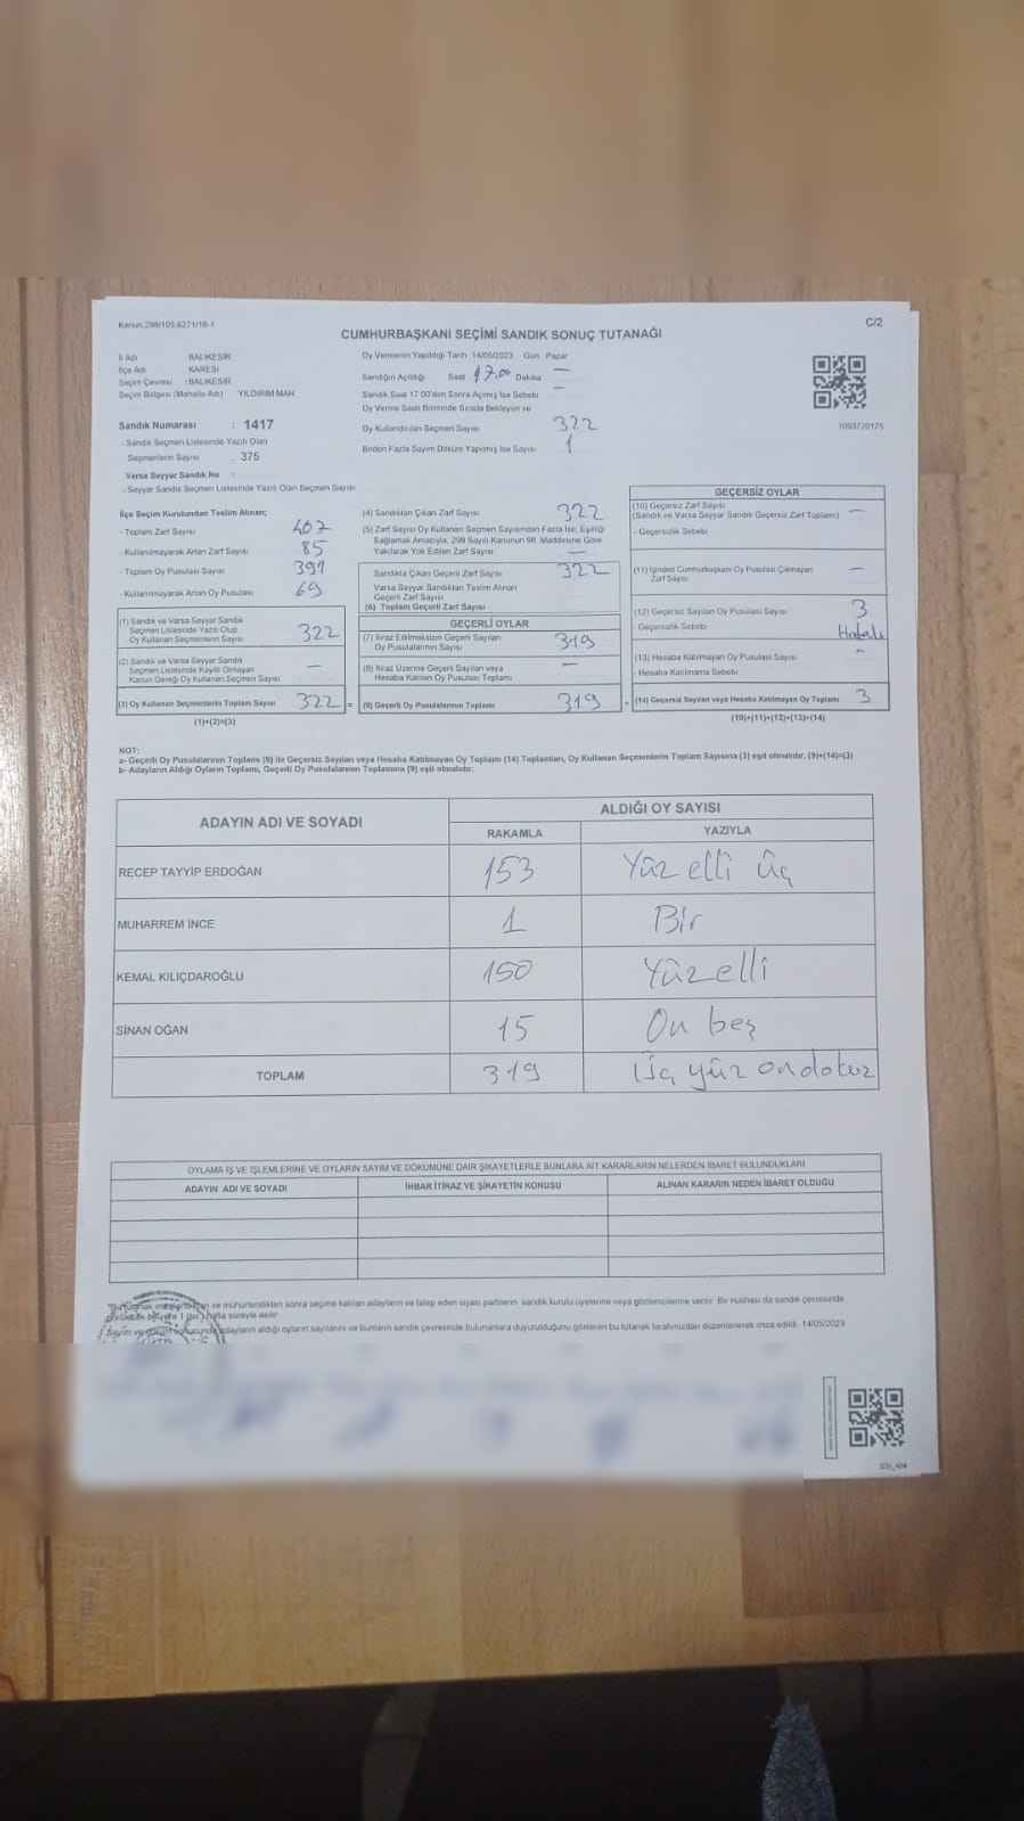 Kanun:298/105,6271/18-1
C/2
CUMHURBAŞKANI SEÇİMİ SANDIK SONUÇ TUTANAĞI
İl Adı BALIKESİR
İlçe Adı KARESİ
Seçim Çevresi : BALIKESİR
Seçim Bölgesi (Mahalle Adı) YILDIRIM MAH.
Sandık Numarası : 1417
- Sandık Seçmen Listesinde Yazılı Olan
Seçmenlerin Sayısı : 375
Varsa Seyyar Sandık No
- Seyyar Sandık Seçmen Listesinde Yazılı Olan Seçmen Sayısı
Oy Vermenin Yapıldığı Tarih 14/05/2023 Gün Pazar
Sandığın Açıldığı Saat 17.00 Dakika —
Sandık Saat 17.00'den Sonra Açılmış İse Sebebi —
Oy Verme Saati Bitiminde Sırada Bekleyen
Oy Kullandırılan Seçmen Sayısı 322
Birden Fazla Sayım Döküm Yapılmış İse Sayısı 1
İlçe Seçim Kurulundan Teslim Alınan;
- Toplam Zarf Sayısı 407
- Kullanılmayarak Artan Zarf Sayısı 85
- Toplam Oy Pusulası Sayısı 391
- Kullanılmayarak Artan Oy Pusulası 69
(1) Sandık ve Varsa Seyyar Sandık
Seçmen Listesinde Yazılı Olup
Oy Kullanan Seçmenlerin Sayısı 322
(2) Sandık ve Varsa Seyyar Sandık
Seçmen Listesinde Kayıtlı Olmayan
Kanun Gereği Oy Kullanan Seçmen Sayısı —
(3) Oy Kullanan Seçmenlerin Toplam Sayısı 322 =
(1)+(2)=(3)
(4) Sandıktan Çıkan Zarf Sayısı 322
(5) Zarf Sayısı Oy Kullanan Seçmen Sayısından Fazla İse, Eşitliği
Sağlamak Amacıyla, 298 Sayılı Kanunun 98. Maddesine Göre
Yakılarak Yok Edilen Zarf Sayısı —
Sandıkta Çıkan Geçerli Zarf Sayısı 322
Varsa Seyyar Sandıktan Teslim Alınan
Geçerli Zarf Sayısı
(6) Toplam Geçerli Zarf Sayısı
GEÇERLİ OYLAR
(7) İtiraz Edilmeksizin Geçerli Sayılan
Oy Pusulalarının Sayısı 319
(8) İtiraz Üzerine Geçerli Sayılan veya
Hesaba Katılan Oy Pusulası Toplamı —
(9) Geçerli Oy Pusulalarının Toplamı 319
GEÇERSİZ OYLAR
(10) Geçersiz Zarf Sayısı —
(Sandık ve Varsa Seyyar Sandık Geçersiz Zarf Toplamı)
- Geçersizlik Sebebi
(11) İçinden Cumhurbaşkanı Oy Pusulası Çıkmayan
Zarf Sayısı —
(12) Geçersiz Sayılan Oy Pusulası Sayısı 3
Geçersizlik Sebebi Hatalı
(13) Hesaba Katılmayan Oy Pusulası Sayısı —
- Hesaba Katılmama Sebebi
(14) Geçersiz Sayılan veya Hesaba Katılmayan Oy Toplamı 3
(10)+(11)+(12)+(13)=(14)
NOT:
a- Geçerli Oy Pusulalarının Toplamı (9) ile Geçersiz Sayılan veya Hesaba Katılmayan Oy Toplamı (14) Toplamları, Oy Kullanan Seçmenlerin Toplam Sayısına (3) eşit olmalıdır. (9)+(14)=(3)
b- Adayların Aldığı Oyların Toplamı, Geçerli Oy Pusulalarının Toplamına (9) eşit olmalıdır.
ADAYIN ADI VE SOYADI
ALDIĞI OY SAYISI
RAKAMLA YAZIYLA
RECEP TAYYİP ERDOĞAN 153 Yüz elli üç
MUHARREM İNCE 1 Bir
KEMAL KILIÇDAROĞLU 150 Yüzelli
SİNAN OĞAN 15 On beş
TOPLAM 319 Üç yüz ondokuz
OYLAMA İŞ VE İŞLEMLERİNE VE OYLARIN SAYIM VE DÖKÜMÜNE DAİR ŞİKAYETLERLE BUNLARA AİT KARARLARIN NELERDEN İBARET BULUNDUKLARI
ADAYIN ADI VE SOYADI İHBAR İTİRAZ VE ŞİKAYETİN KONUSU ALINAN KARARIN NEDEN İBARET OLDUĞU
ve mühürlendikten sonra seçime katılan adayların ve talep eden siyasi partilerin sandık kurulu üyelerine veya gözlemcilerine verilir. Bir nüshası da sandık çevresinde
adayların aldığı oyların sayılarını ve bunların sandık çevresinde bulunanlara duyurulduğunu gösteren bu tutanak tarafımızdan düzenlenerek imza edildi. 14/05/2023